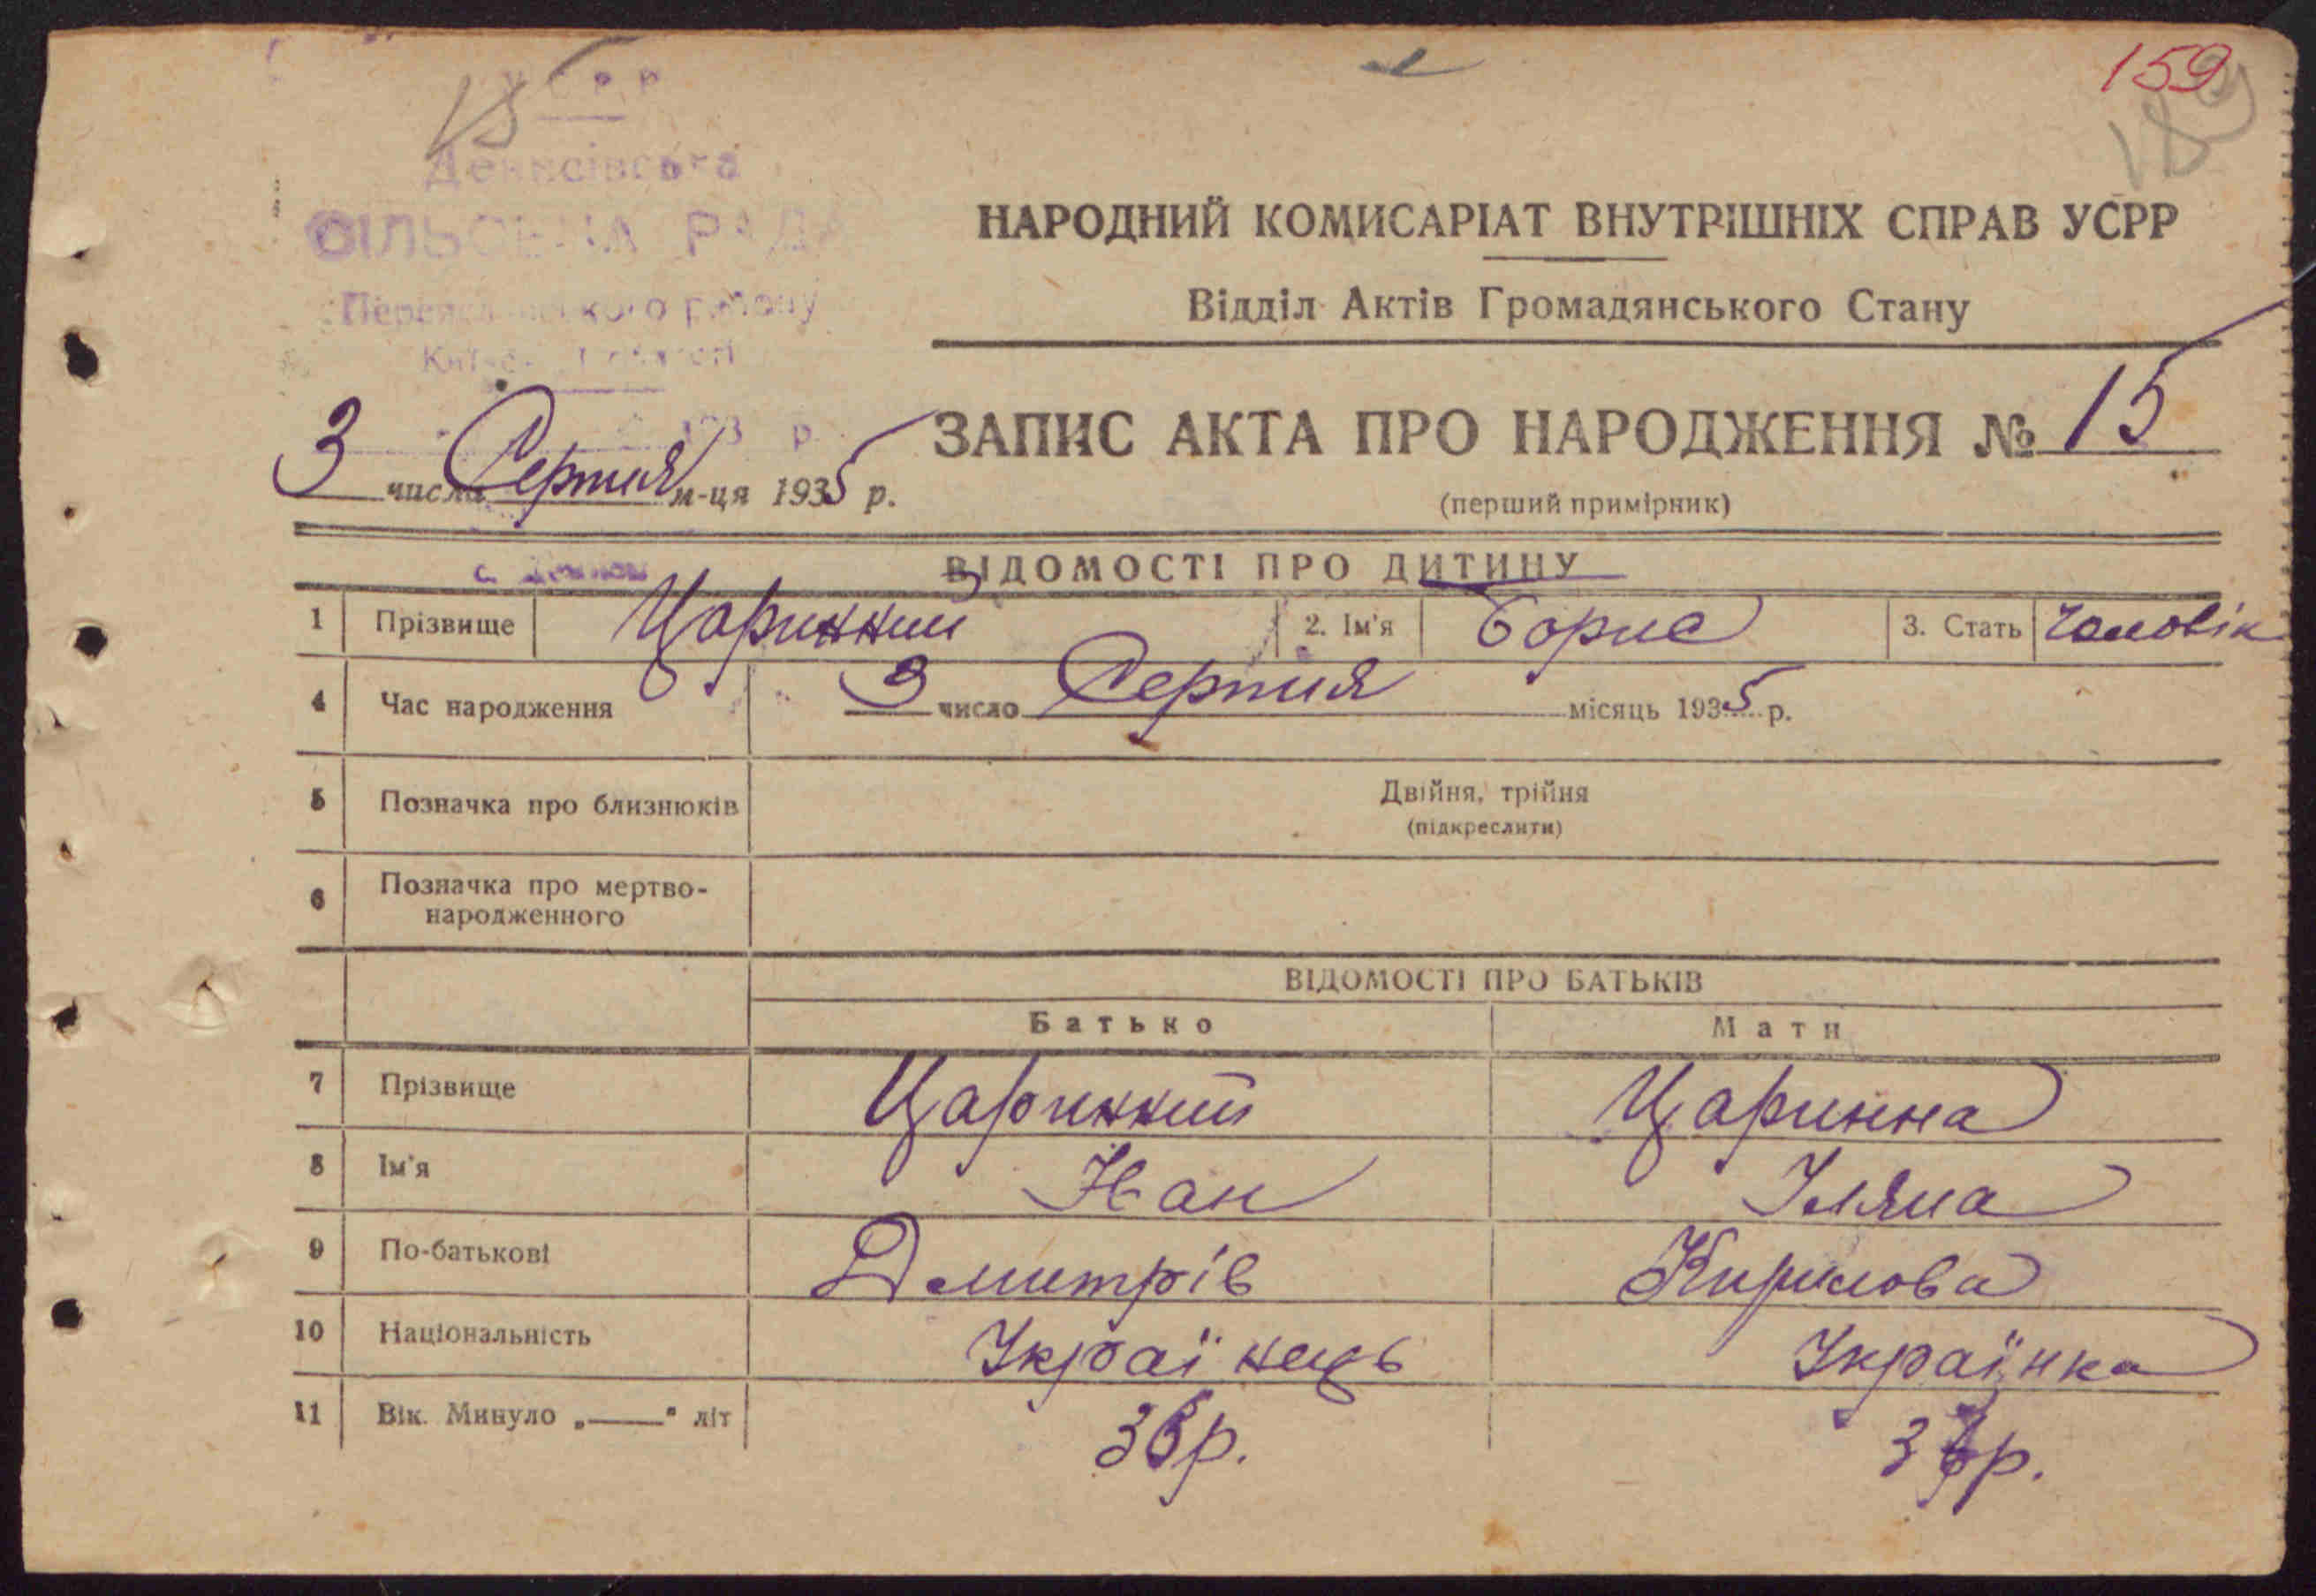 159
15
189
УСРР
Денисівська
СІЛЬСЬКА РАДА
Переяславського району
Київської області
193 р.
НАРОДНИЙ КОМИСАРІАТ ВНУТРІШНІХ СПРАВ УСРР
Відділ Актів Громадянського Стану
ЗАПИС АКТА ПРО НАРОДЖЕННЯ № 15
3 числа Серпня м-ця 1935 р.
(перший примірник)
с. Дениси
ВІДОМОСТІ ПРО ДИТИНУ
1 Прізвище Царинний 2. Ім'я Борис 3. Стать Чоловік
4 Час народження 3 число Серпня місяць 1935 р.
5 Позначка про близнюків Двійня, трійня
(підкреслити)
6 Позначка про мертво-
народженного
ВІДОМОСТІ ПРО БАТЬКІВ
Батько Мати
7 Прізвище Царинний Царинна
8 Ім'я Іван Уляна
9 По-батькові Дмитрів Кирилова
10 Національність Українець Українка
11 Вік. Минуло „——" літ 36р. р.